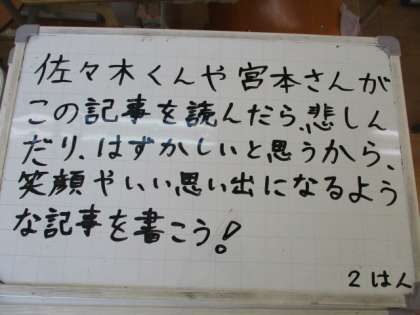 佐々木くんや宮本さんが
この記事を読んだら、悲しん
だり、はずかしいと思うから、
笑顔やいい思い出になるよう
な記事を書こう!
2はん